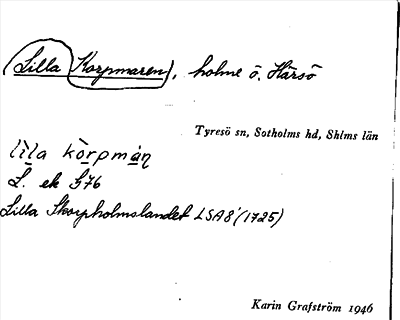 Lilla Korpmaren, holme ö. Härsö
Tyresö sn, Sotholms hd, Shlms län
lìla kòrpmàn
L. ek S76
Lilla Skorpholmslandet LSA8'(1725)
Karin Grafström 1946